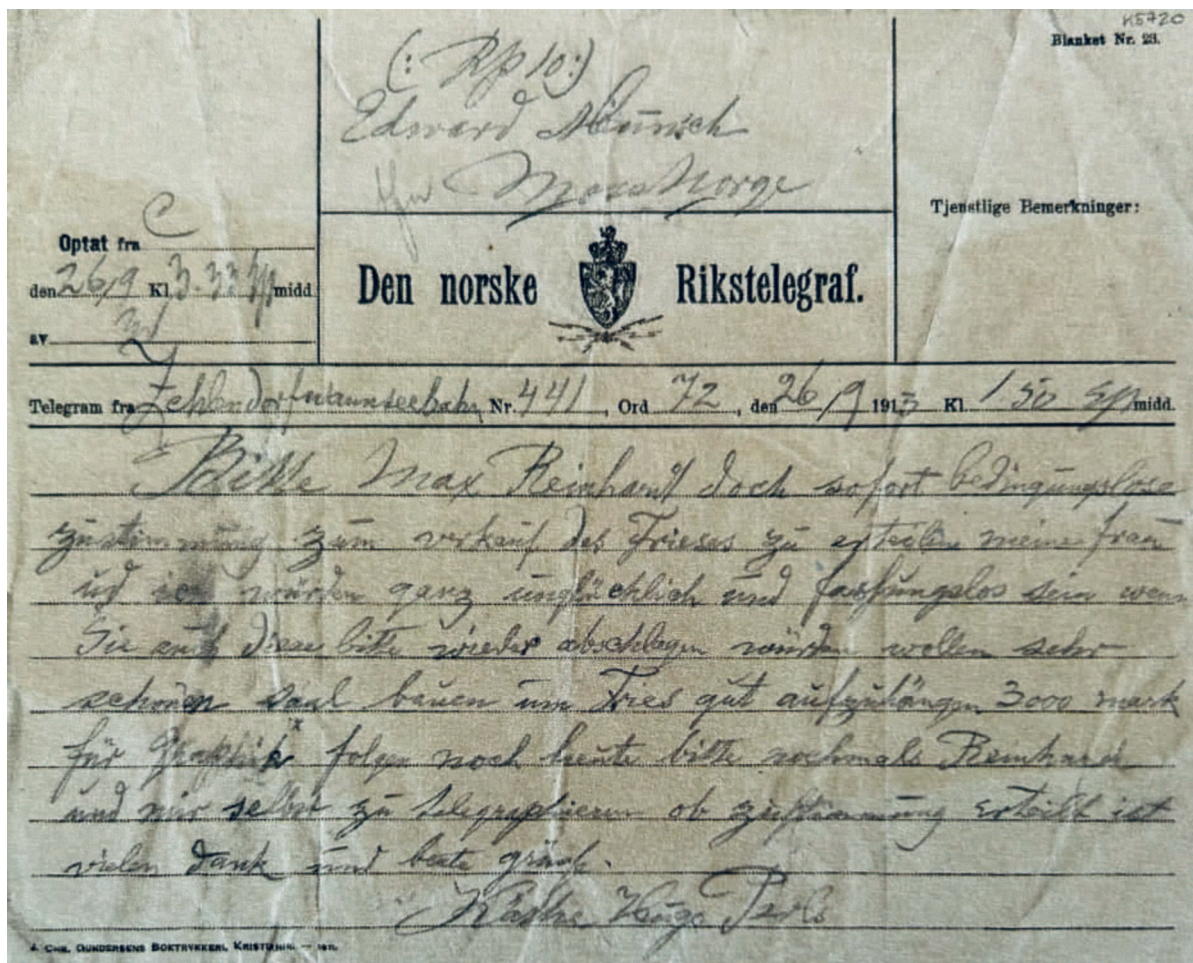 K5720
Blanket Nr. 23.
(: Rp 10:)
Edward Munsch
Moss Norge
Tjenstlige Bemerkninger:
C
Optat fra
den 26/9 Kl. 3.33 Em midd.
av
Den norske Rikstelegraf.
Telegram fra Zehlendorfwannseebahn Nr. 441, Ord 72, den 26/9 1913 Kl. 1 50 Em midd.
Bitte Max Reinhardt doch sofort bedingungslose
zustimmung zum verkauf des Frieses zu erteilen meine frau
ud ich würden ganz unglücklich und fassungslos sein wenn
Sie auch diese bitte wieder abschlagen würden wollen sehr
schönen saal bauen um Fries gut aufzuhängen 3000 mark
für Graphik folgen noch heute bitte nochmals Reinhard
und mir selbst zu telegraphieren ob zustimmung erteilt ist
vielen dank und beste grüsse.
Käthe Hugo Perls
J. Chr. Gundersens Boktrykkeri, Kristiania. —